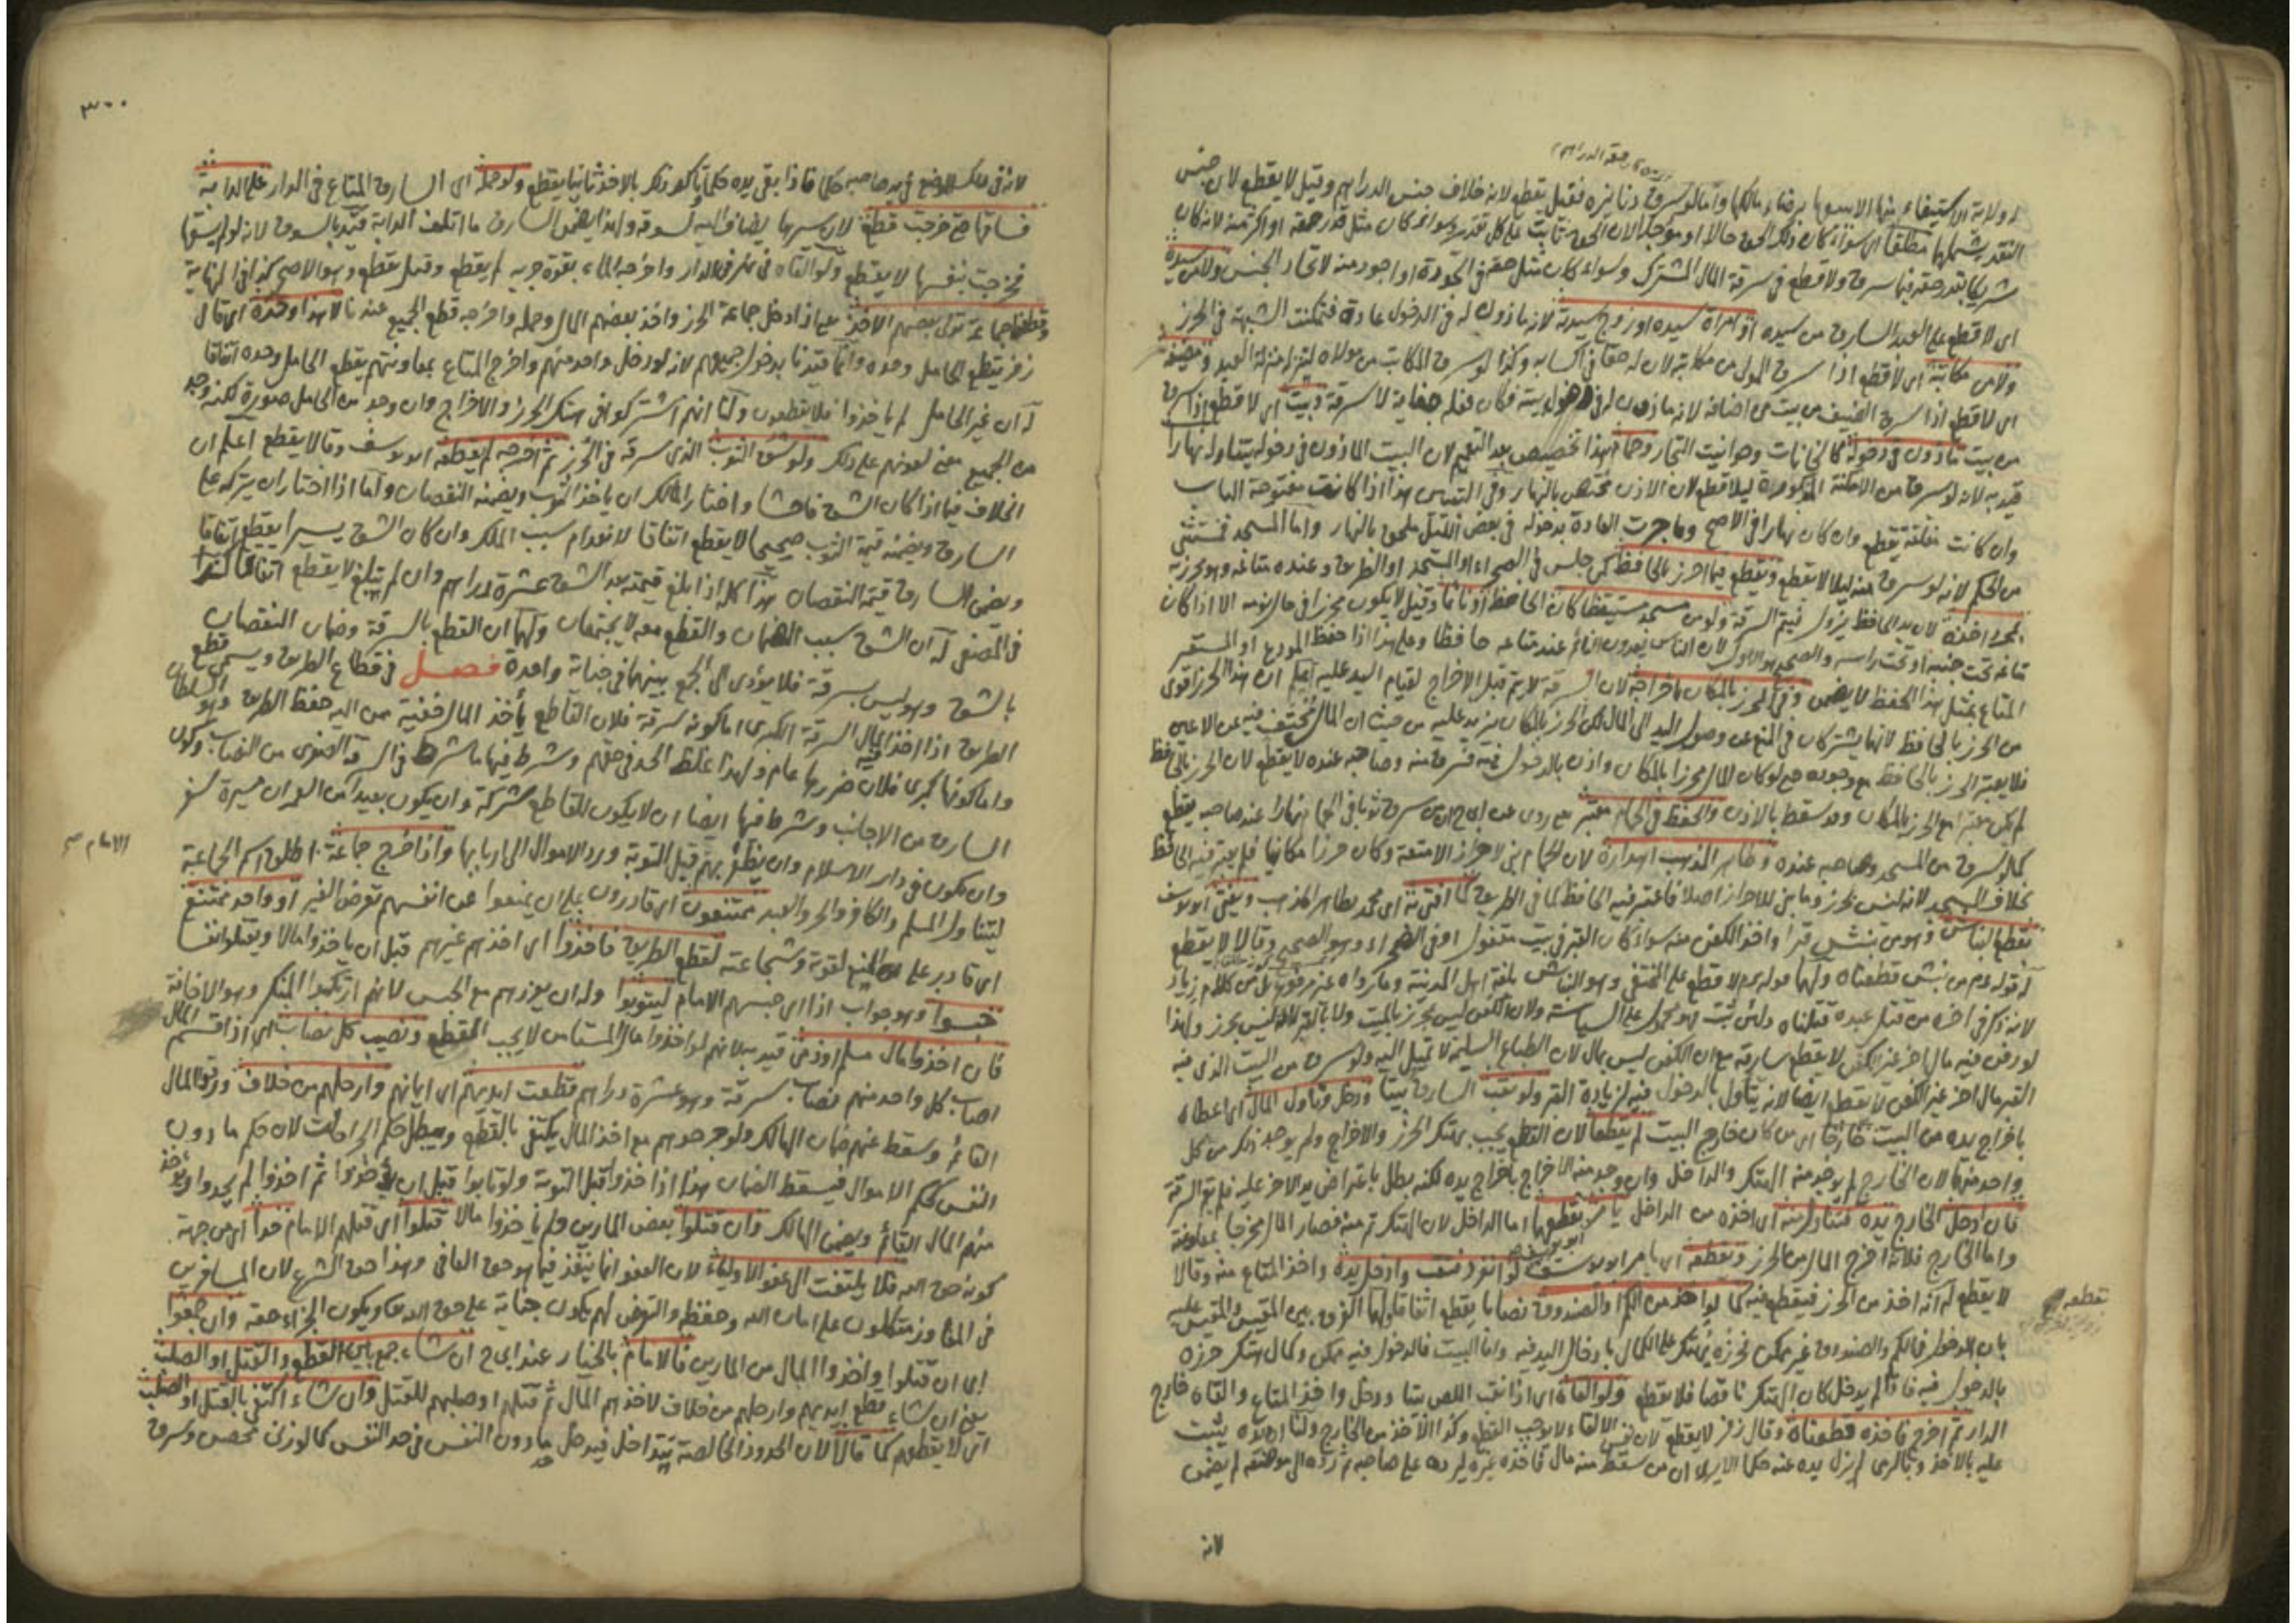 او ولاية الاستيفاء منها الا ببيعها برضاء مالكها واما لو سرق دنانيره فقيل تقطع لانه خلاف جنس الدراهم وقيل لا يقطع لان جنس
النقد يشملها مطلقا اى سواء كان ذلك الحق حالا او مؤجلا لان الحق ثابت على كل تقدير وسواء كان مثل قدر حقه او اكثر منه لانه كان
شريكا بقدر حقه فيما سرق ولا قطع فى سرقة المال المشترك وسواء كان مثل حقه فى الجودة او اجود منه لاتحاد الجنس ولا من سيده
اى لا قطع على العبد السارق من سيده او امراة سيده او زوج سيدته لانه ماذون له فى الدخول عادة فتمكنت الشبهة فى الحرز
ولا من مكاتبه اى لا قطع اذا سرق المولى من مكاتبه لان له حقا فى اكسابه وكذا لو سرق المكاتب من مولاه لانه بمنزلة العبد ومضيفه
اى لا قطع اذا سرق الضيف من بيت من اضافه لانه ماذون له فى دخول بيته فكان فعله خيانة لا سرقة وبيت اى لا قطع اذا سرق
من بيت ماذون فى دخوله كالخانات وحوانيت التجار وحمام هذا تخصيص بعد التعميم لان البيت الماذون فى دخوله يتناوله نهارا
قيد به لانه لو سرق من الامكنة المذكورة ليلا قطع لان الاذن مختص بالنهار وفى هذا اذا كانت مفتوحة الباب
وان كانت مغلقة تقطع وان كان نهارا فى الاصح وما جرت العادة بدخوله فى بعض الليل ملحق بالنهار واما المسجد فمستثنى
من الحكم لانه لو سرق منه ليلا لا يقطع ويقطع فيما احرز بالحافظ كمن جلس فى الصحراء او المسجد او الطريق وعنده متاعه وهو محرز به
اخذه لان يد الحافظ يزول فيتم السرقة ولو من مسجد مستيقظا كان الحافظ او نائما وقيل لا يكون محرزا فى حال نومه الا اذا كان
متاعه تحت جنبه او تحت راسه والصحيح هو الاول لان الناس يعدون النائم عند متاعه حافظا وعلى هذا اذا حفظ المودع او المستعير
المتاع بمثل هذا الحفظ لا يضمن وفى المحرز بالمكان باخراجه لان السرقة لا يتم قبل الاخراج لقيام اليد عليه اعلم ان هذا الحرز اقوى
من الحرز بالحافظ لانهما يشتركان فى المنع عن وصول اليد الى المال لكن الحرز بالمكان يزيد عليه من حيث ان المال مختف فيه عن الاعين
فلا يعتبر الحرز بالحافظ مع وجوده حتى لو كان المال محرزا بالمكان واذن بالدخول فيه فسرق منه وصاحبه عنده لا يقطع لان الحرز بالحافظ
لم يكن معتبرا مع الحرز بالمكان وقد سقط بالاذن والحفظ فى الحمام معتبر روى عن ابى ح ان من سرق ثوبا فى الحمام نهارا عند صاحبه يقطع
كما لو سرق من المسجد وصاحبه عنده وظاهر المذهب اهداره لان الحمام بنى لاحراز الامتعة وكان حرزا مكانيا فلم يعتبر فيه الحافظ
بخلاف المسجد لانه ليس بحرز وما بنى للاحراز اصلا فاعتبر فيه الحافظ كما فى الطريق كما افتى به اى محمد بظاهر المذهب ويفتى ابو يوسف
بقطع النباش وهو من نبش قبرا واخذ الكفن منه سواء كان القبر فى بيت مقفول او فى الصحراء وهو الصحيح وقالا لا يقطع
له قوله عم من نبش قطعناه ولهما قوله عم لا قطع على المختفى وهو النباش بلغة اهل المدينة وما رواه غير مرفوع بل من كلام زياد
لانه ذكر فى اخره من قتل عبده قتلناه ولئن ثبت فهو محمول على السياسة ولان الكفن ليس بمحرز بالميت ولا بالقبر لانه ليس بحرز ولهذا
لو دفن فيه مال اخر غير الكفن لا يقطع سارقه مع ان الكفن ليس بمال لان الطباع السليمة لا تميل اليه ولو سرق من البيت الذى فيه
القبر مال اخر غير الكفن لا يقطع ايضا لانه يتأول بالدخول فيه لزيارة القبر ولو نقب السارق بيتا ودخل وناول المال اى اعطاه
باخراج يده من البيت خارجا اى من كان خارج البيت لم يقطعا لان القطع يجب بهتك الحرز والاخراج ولم يوجد ذلك من كل
واحد منهما لان الخارج لم يوجد منه الهتك والداخل وان وجد منه الاخراج باخراج يده لكنه بطل باعتراض يد الاخر عليه فلم يتم السرقة
فان ادخل الخارج يده فتناول منه اى اخذه من الداخل يأمر بقطعهما اما الداخل لان الهتك تم منه فصار المال مخرجا بمعاونته
واما الخارج فلانه اخرج المال من الحرز ويقطعه اى يامر ابو يوسف لو انفرد فنقب وادخل يده واخذ المتاع منه وقالا
لا يقطع له انه اخذ من الحرز فيقطع فيه كما لو اخذ من الكم او الصندوق نصابا يقطع اتفاقا ولهما الفرق بين المقيس والمقيس عليه
بان الدخول فى الكم والصندوق غير ممكن على الكمال بادخال اليد فيه واما البيت فالدخول فيه ممكن وكمال هتك حرزه
بالدخول فيه فاذا لم يدخل كان الهتك ناقصا فلا يقطع ولو القاه اى اذا نقب اللص بيتا ودخل واخذ المتاع والقاه خارج
الدار ثم اخرج فاخذه قطعناه وقال زفر لا يقطع لان نفس الالقاء لا يوجب القطع وكذا الاخذ من الخارج ولنا ان يده يثبت
عليه بالاخذ وبالرمى لم يزل يده عنه حكما الا يرى ان من سقط منه مال فاخذه غيره ليرده على صاحبه ثم رده الى موضعه لم يضمن
تقطعه
لانه
٣٠٠
لانه فى ذلك الموضع فى يد صاحبه حكما فاذا بقى يده حكما تأكد ذلك بالاخذ ثانيا يقطع ولو حمله اى السارق المتاع فى الدار على الدابة
فساقها حتى خرجت قطع لان سيرها يضاف اليه لسوقه ولهذا يضمن السارق ما اتلفت الدابة قيد بالسوق لانه لو لم يسقها
فخرجت بنفسها لا يقطع ولو القاه فى نهر فى الدار واخرجه الماء بقوة جريه لم يقطع وقيل يقطع وهو الاصح كذا فى النهاية
وقطعنا جماعة تولى بعضهم الاخذ يعنى اذا دخل جماعة الحرز واخذ بعضهم المال وحمله واخرجه قطع الجميع عندنا لا هذا وحده اى قال
زفر يقطع الحامل وحده وانما قيدنا بدخول جميعهم لانه لو دخل واحد منهم واخرج المتاع بمعاونتهم يقطع الحامل وحده اتفاقا
له ان غير الحامل لم ياخذوا فلا يقطعون ولنا انهم اشتركوا فى هتك الحرز والاخراج وان وجد من الحامل صورة لكنه وجد
من الجميع معنى لعونهم على ذلك ولو شق الثوب الذى سرقه فى الحرز ثم اخرجه لم يقطعه ابو يوسف وقالا يقطع اعلم ان
الخلاف فيما اذا كان الشق فاحشا واختار المالك ان ياخذ الثوب ويضمنه النقصان واما اذا اختار ان يتركه على
السارق ويضمنه قيمة الثوب صحيحا لا يقطع اتفاقا لانعدام سبب الملك وان كان الشق يسيرا يقطع اتفاقا
ويضمن السارق قيمة النقصان هذا كله اذا بلغ قيمته بعد الشق عشرة دراهم وان لم يبلغ لا يقطع اتفاقا كذا
فى المصفى له ان الشق سبب الضمان والقطع معه لا يجتمعان ولهما ان القطع بالسرقة وضمان النقصان
بالشق وهو ليس بسرقة فلا يؤدى الى الجمع بينهما فى جناية واحدة فصل فى قطاع الطريق ويسمى قطع
الطريق اذا اخذ المال السرقة الكبرى اما كونه سرقة فلان القاطع يأخذ المال خفية من اليه حفظ الطريق وهو السلطان
واما كونها كبرى فلان ضررها عام ولهذا غلظ الحد فى حقهم وشرط فيها ما شرط فى السرقة الصغرى من النصاب وكون
السارق من الاجانب وشرط فيها ايضا ان لا يكون للقاطع شركة وان يكون بعيدا من العمران مسيرة سفر
وان يكون فى دار الاسلام وان يظفر بهم قبل التوبة ورد الاموال الى اربابها واذا خرج جماعة اطلق اسم الجماعة
ليتناول المسلم والكافر والحر والعبد ممتنعون اى قادرون على ان يمنعوا عن انفسهم تعرض الغير او واحد ممتنع
اى قادر على المنع لقوته وشجاعته لقطع الطريق فاخذوا اى اخذهم غيرهم قبل ان ياخذوا مالا ويقتلوا نفسا
حبسوا وهو جواب اذا اى حبسهم الامام ليتوبوا وله ان يعزرهم مع الحبس لانهم ارتكبوا المنكر وهو الاخافة
فان اخذوا مال مسلم او ذمى قيد به لانهم لو اخذوا مال المستامن لا يجب القطع ونصيب كل نصاب اى اذا قسم المال
اصاب كل واحد منهم نصاب سرقة وهو عشرة دراهم قطعت ايديهم اى ايمانهم وارجلهم من خلاف ورد المال
القائم وسقط عنهم ضمان الهالك ولو جرحوهم مع اخذ المال يكتفى بالقطع ويبطل حكم الجراحات لان حكم ما دون
النفس كحكم الاموال فيسقط الضمان هذا اذا اخذوا قبل التوبة ولو تابوا قبل ان يؤخذوا ثم اخذوا لم يحدوا ويؤخذ
منهم المال القائم ويضمن الهالك وان قتلوا بعض المارين ولم ياخذوا مالا قتلوا اى قتلهم الامام حدا اى من جهة
كونه حق الله فلا يلتفت الى عفو الاولياء لان العفو انما ينفذ فيما هو حق العافى وهذا حق الشرع لان المسافرين
فى المفاوز متكلون على امان الله وحفظه والتعرض لهم يكون جناية على حق الله تعالى ويكون الجزاء حقه وان جمعوا
اى ان قتلوا واخذوا المال من المارين فالامام بالخيار عند ابى ح ان شاء جمع بين القطع والقتل او الصلب
يعنى ان شاء قطع ايديهم وارجلهم من خلاف لاخذهم المال ثم قتلهم او صلبهم للقتل وان شاء اكتفى بالقتل او الصلب
اى لا يقطعهم كما قالا لان الحدود الخالصة تتداخل فيدخل ما دون النفس فى حد النفس كما لو زنى محصن وسرق